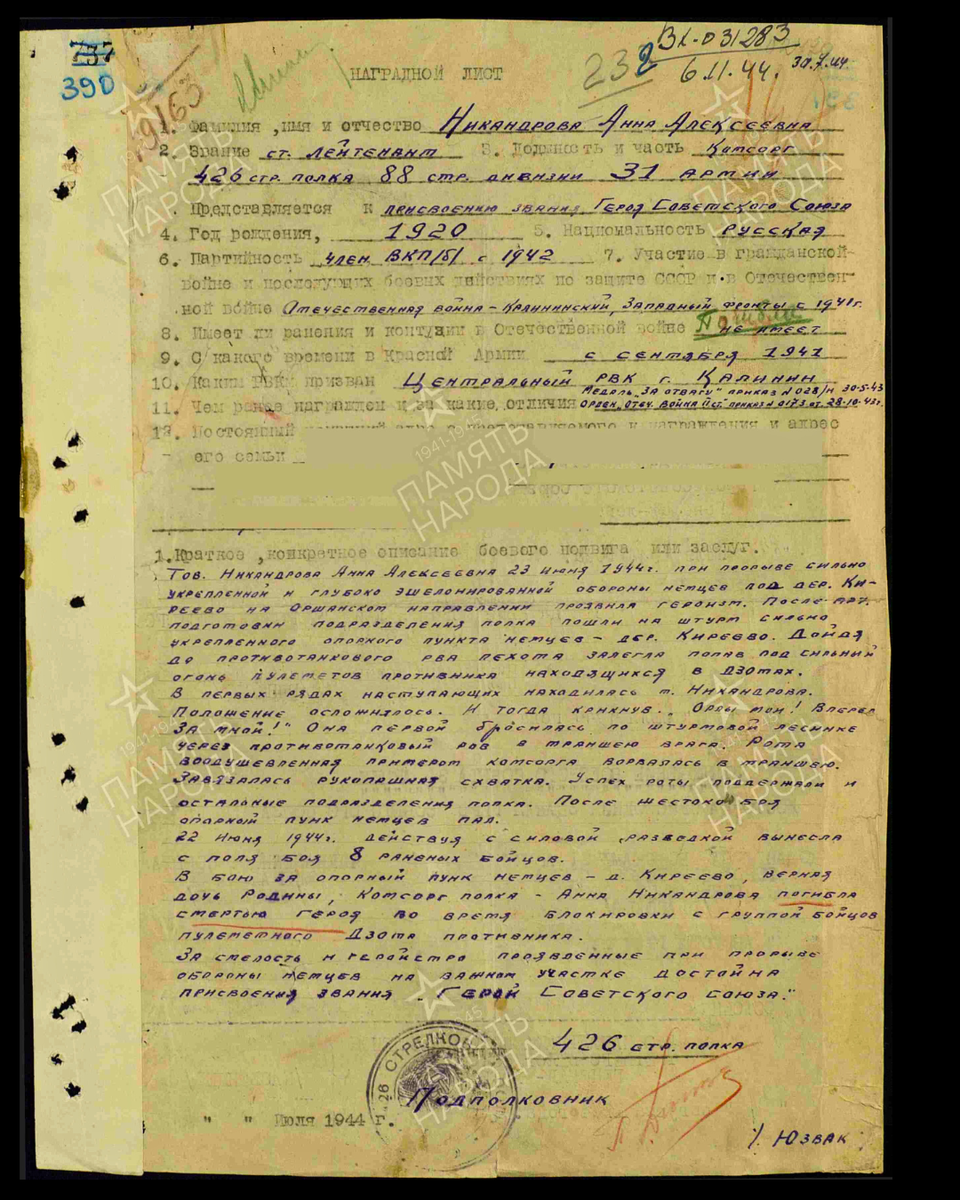 737
390
9163
238
ВХ-031283
6.11.44.
НАГРАДНОЙ ЛИСТ
1. Фамилия ,имя и отчество Никандрова Анна Алексеевна
2. Звание ст. лейтенант 3. Должность и часть Комсорг
426 стр. полка 88 стр. дивизии 31 армии
Представляется к присвоению звания Героя Советского Союза
4. Год рождения, 1920 5. Национальность русская
6. Партийность член ВКП/б/ с 1942 7. Участие в гражданской
войне и последующих боевых действиях по защите СССР и в Отечествен-
ной войне Отечественная война – Калининский, Западный фронты с 1941г.
8. Имеет ли ранения и контузии в Отечественной войне не имеет
Погибла
9. С какого времени в Красной Армии с сентября 1941
10. Каким РВК призван Центральный РВК г. Калинин
Медаль „За отвагу" приказ № 028/н 30-5-43
11. Чем ранее награжден и за какие отличия Орден „Отеч. война IIст." приказ № 0173 от 28-10-43г.
13. Постоянный представляемого к награждения и адрес
его семьи
1.Краткое ,конкретное описание боевого подвига или заслуг.
Тов. Никандрова Анна Алексеевна 23 июня 1944г. при прорыве сильно
укрепленной и глубоко эшелонированной обороны немцев под дер. Ки-
реево на Оршанском направлении проявила героизм. После арт.
подготовки подразделения полка пошли на штурм сильно
укрепленного опорного пункта немцев – дер. Киреево. Дойдя
до противотанкового рва пехота залегла попав под сильный
огонь пулеметов противника находящихся в дзотах.
В первых рядах наступающих находилась т. Никандрова.
Положение осложнилось. И тогда крикнув. „Орлы мои! Вперед
за мной!" Она первой бросилась по штурмовой лесенке
через противотанковый ров в траншею врага. Рота
воодушевленная примером комсорга ворвалась в траншею.
Завязалась рукопашная схватка. Успех роты поддержали и
остальные подразделения полка. После жестоко боя
опорный пунк немцев пал.
22 июня 1944г. действуя с силовой разведкой вынесла
с поля боя 8 раненых бойцов.
В бою за опорный пунк немцев – д. Киреево, верная
дочь Родины, комсорг полка – Анна Никандрова погибла
смертью героя во время блокировки с группой бойцов
пулеметного дзота противника.
За смелость и геройство проявленные при прорыве
обороны немцев на важном участке достойна
присвоения звания „Герой Советского Союза."
426 стр. полка
Подполковник
/. Юзвак
" " Июля 1944 г.
426 СТРЕЛКОВ
ПАМЯТЬ НАРОДА
1941-1945